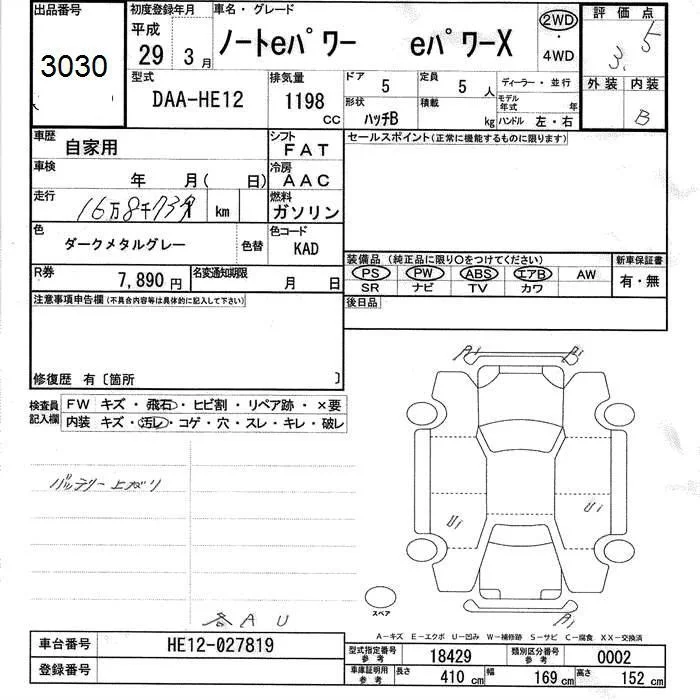 出品番号
3030
初度登録年月
平成
29 3 月
車名・グレード
ノートeパワー eパワーX
2WD
・
4WD
評価点
3.5
外装 内装
B
型式
DAA-HE12
排気量
1198
CC
ドア
5
定員
5 人
ディーラー・並行
形状
ハッチB
積載
kg
モデル年式 年
ハンドル 左・右
車歴
自家用
シフト
FAT
セールスポイント(正常に機能するものに限ります)
車検
年 月( 日)
冷房
AAC
走行
16万8千73 km
燃料
ガソリン
色
ダークメタルグレー
色替
色コード
KAD
装備品(純正品に限り○をつけてください)
新車保証書
PS PW ABS エアB AW
SR ナビ TV カワ
有・無
R券
7,890 円
名変通知期限
月 日
後日品
注意事項申告欄(不具合内容等は具体的に記入して下さい)
修復歴 有〔箇所 〕
検査員記入欄
FW キズ・飛石・ヒビ割・リペア跡・×要
内装 キズ・汚レ・コゲ・穴・スレ・キレ・破レ
バッテリー上がり
各AU
A1
A1
U1
U1
A1
スペア
A-キズ E-エクボ U-凹み W-補修跡 S-サビ C-腐食 XX-交換済
車台番号
HE12-027819
登録番号
型式指定番号
参考
18429
類別区分番号
参考
0002
車庫証明用
参考
長さ 410 cm
幅 169 cm
高さ 152 cm